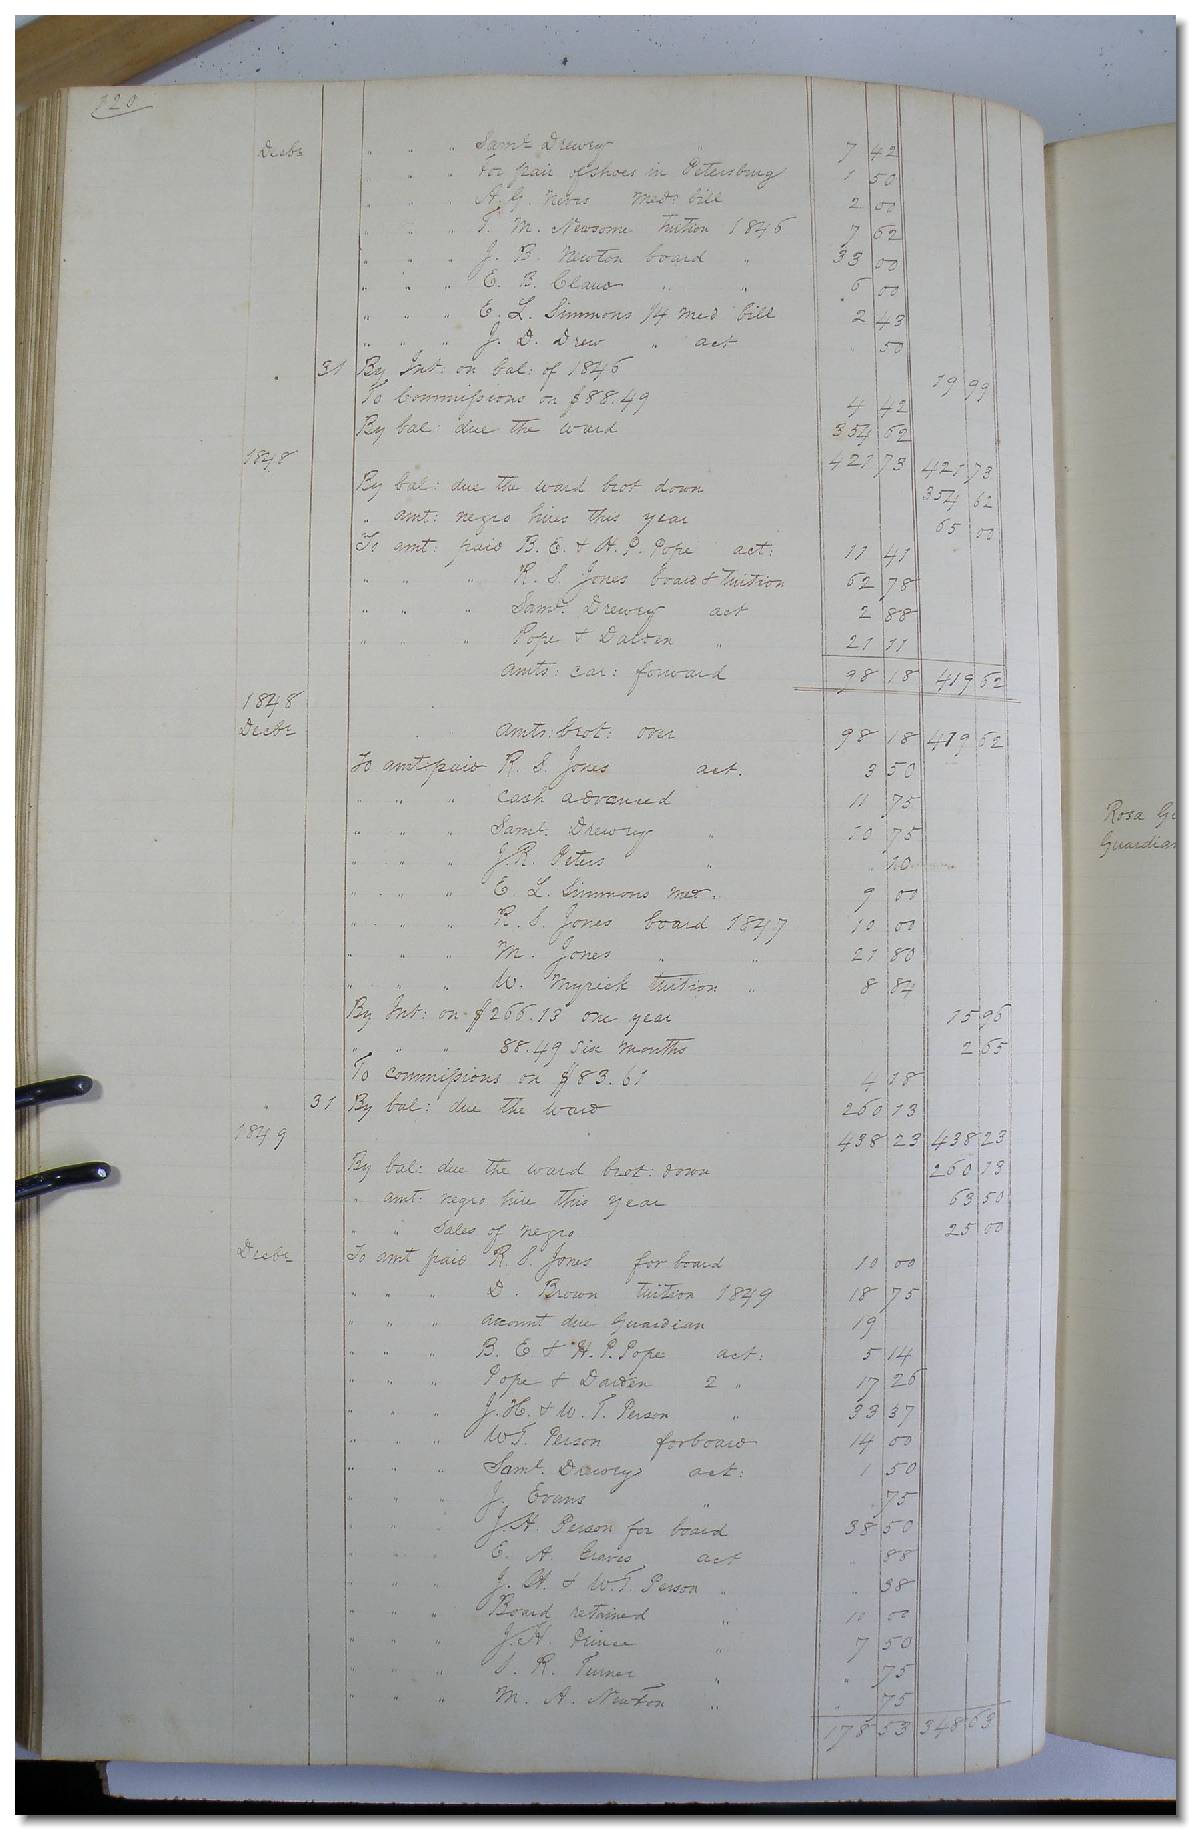 120
Decbr " " " Saml Drewry " 7 42
" " " For pair of shoes in Petersburg 1 50
" " " A. G. Neves med: bill 2 00
" " " T. M. Newsome tuition 1846 7 62
" " " J. B. Newton board " 33 00
" " " E. B. Claud " " 6 00
" " " E. L. Simmons 1/4 med bill 2 43
" " " J. D. Drew " act " 50
" 31 By Int: on bal: of 1846 19 99
To Commissions on $88.49 4 42
By bal: due the ward 354 62
1848 421 73 421 73
By bal: due the ward brot down 354 62
" amt: negro hires this year 65 00
To amt: paid B. E. & H. P. Pope act: 11 41
" " " R. S. Jones board & Tuition 62 78
" " " Saml. Drewry act 2 88
" " " Pope & Darden " 21 11
amts: car: forward 98 18 419 62
1848
Decbr amts: brot: over 98 18 419 62
To amt paid R. S. Jones act. 3 50
" " " cash advanced 11 75
" " " Saml. Drewry " 10 75
" " " J. R. Peters " " 20
" " " E. L. Simmons med. " 9 00
" " " R. S. Jones board 1847 10 00
" " " M. Jones " " 21 80
" " " W. Myrick tuition " 8 84
By Int: on $266.13 one year 15 96
" " " 88.49 six months 2 65
To commissions on $83.61 4 18
" 31 By bal: due the ward 260 13
1849 438 23 438 23
By bal: due the ward brot: down 260 13
" amt: negro hire this year 63 50
" " Sales of negro 25 00
Decbr To amt paid R. S. Jones for board 10 00
" " " D. Brown tuition 1849 18 75
" " " account due Guardian 19
" " " B. E & H. P. Pope act: 5 14
" " " Pope & Darden 2 " 17 26
" " " J. H. & W. T. Person " 33 37
" " " W T. Person for board 14 00
" " " Saml. Drewry act: 1 50
" " " J. Evans " " 75
" " " J. H. Person for board 38 50
" " " E. A. act " 88
" " " J. H. & W. T. Person " " 38
" " " Board retained " 10 00
" " " J. H. Prince " 7 50
" " " R. Turner " " 75
" " " M. A. Newton " " 75
178 53 348 63
Rosa
Guardian